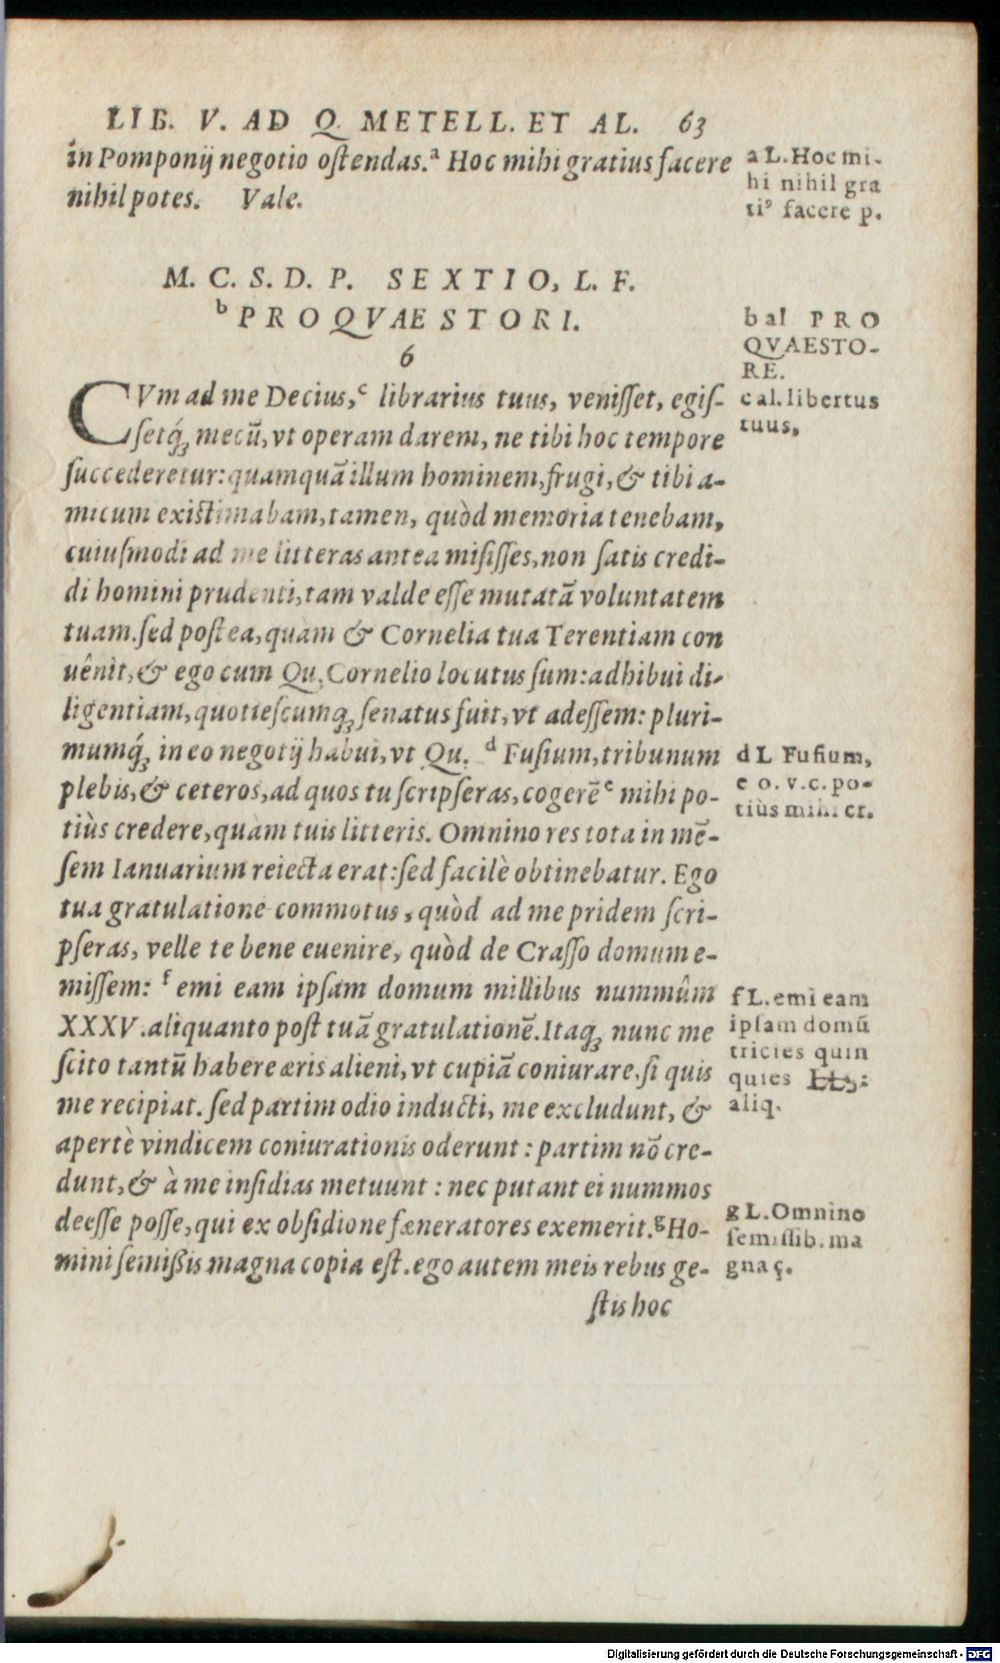 LIB. V. AD Q. METELL. ET AL. 63
in Pomponij negotio oſtendas.ᵃ Hoc mihi gratius facere
nihil potes. Vale.
a L. Hoc mi-
hi nihil gra
tiꝰ facere p.
M. C. S. D. P. SEXTIO, L. F.
ᵇ PROQVAESTORI.
6
b al PRO
QVAESTO-
RE.
CVm ad me Decius,ᶜ librarius tuus, veniſſet, egiſ-
ſetq́ꝫ mecũ, vt operam darem, ne tibi hoc tempore
ſuccederetur: quamquã illum hominem, frugi, & tibi a-
micum exiſtimabam, tamen, quòd memoria tenebam,
cuiuſmodi ad me litteras antea miſiſſes, non ſatis credi-
di homini prudenti, tam valde eſſe mutatã voluntatem
tuam. ſed poſtea, quàm & Cornelia tua Terentiam con
uênit, & ego cum Qu. Cornelio locutus ſum: adhibui di-
ligentiam, quotieſcumqꝫ ſenatus fuit, vt adeſſem: pluri-
mumq́ꝫ in eo negotij habui, vt Qu. ᵈ Fuſium, tribunum
plebis, & ceteros, ad quos tu ſcripſeras, cogerẽᵉ mihi po-
tiùs credere, quàm tuis litteris. Omnino res tota in mẽ-
ſem Ianuarium reiecta erat: ſed facilè obtinebatur. Ego
tua gratulatione commotus, quòd ad me pridem ſcri-
pſeras, velle te bene euenire, quòd de Craſſo domum e-
miſſem: ᶠ emi eam ipſam domum millibus nummûm
XXXV. aliquanto poſt tuã gratulationẽ. Itaqꝫ nunc me
ſcito tantũ habere æris alieni, vt cupiã coniurare. ſi quis
me recipiat. ſed partim odio inducti, me excludunt, &
apertè vindicem coniurationis oderunt: partim nõ cre-
dunt, & à me inſidias metuunt: nec putant ei nummos
deeſſe poſſe, qui ex obſidione fæneratores exemerit.ᵍ Ho-
mini ſemiſsis magna copia eſt. ego autem meis rebus ge-
ſtis hoc
c al. libertus
tuus,
d L Fufium,
e o. v. c. po-
tiùs mihi cr.
f L. emi eam
ipſam domũ
tricies quin
quies
aliq.
g L. Omnino
ſemiſſib. ma
gna ç.
Digitalisierung gefördert durch die Deutsche Forschungsgemeinschaft - DFG